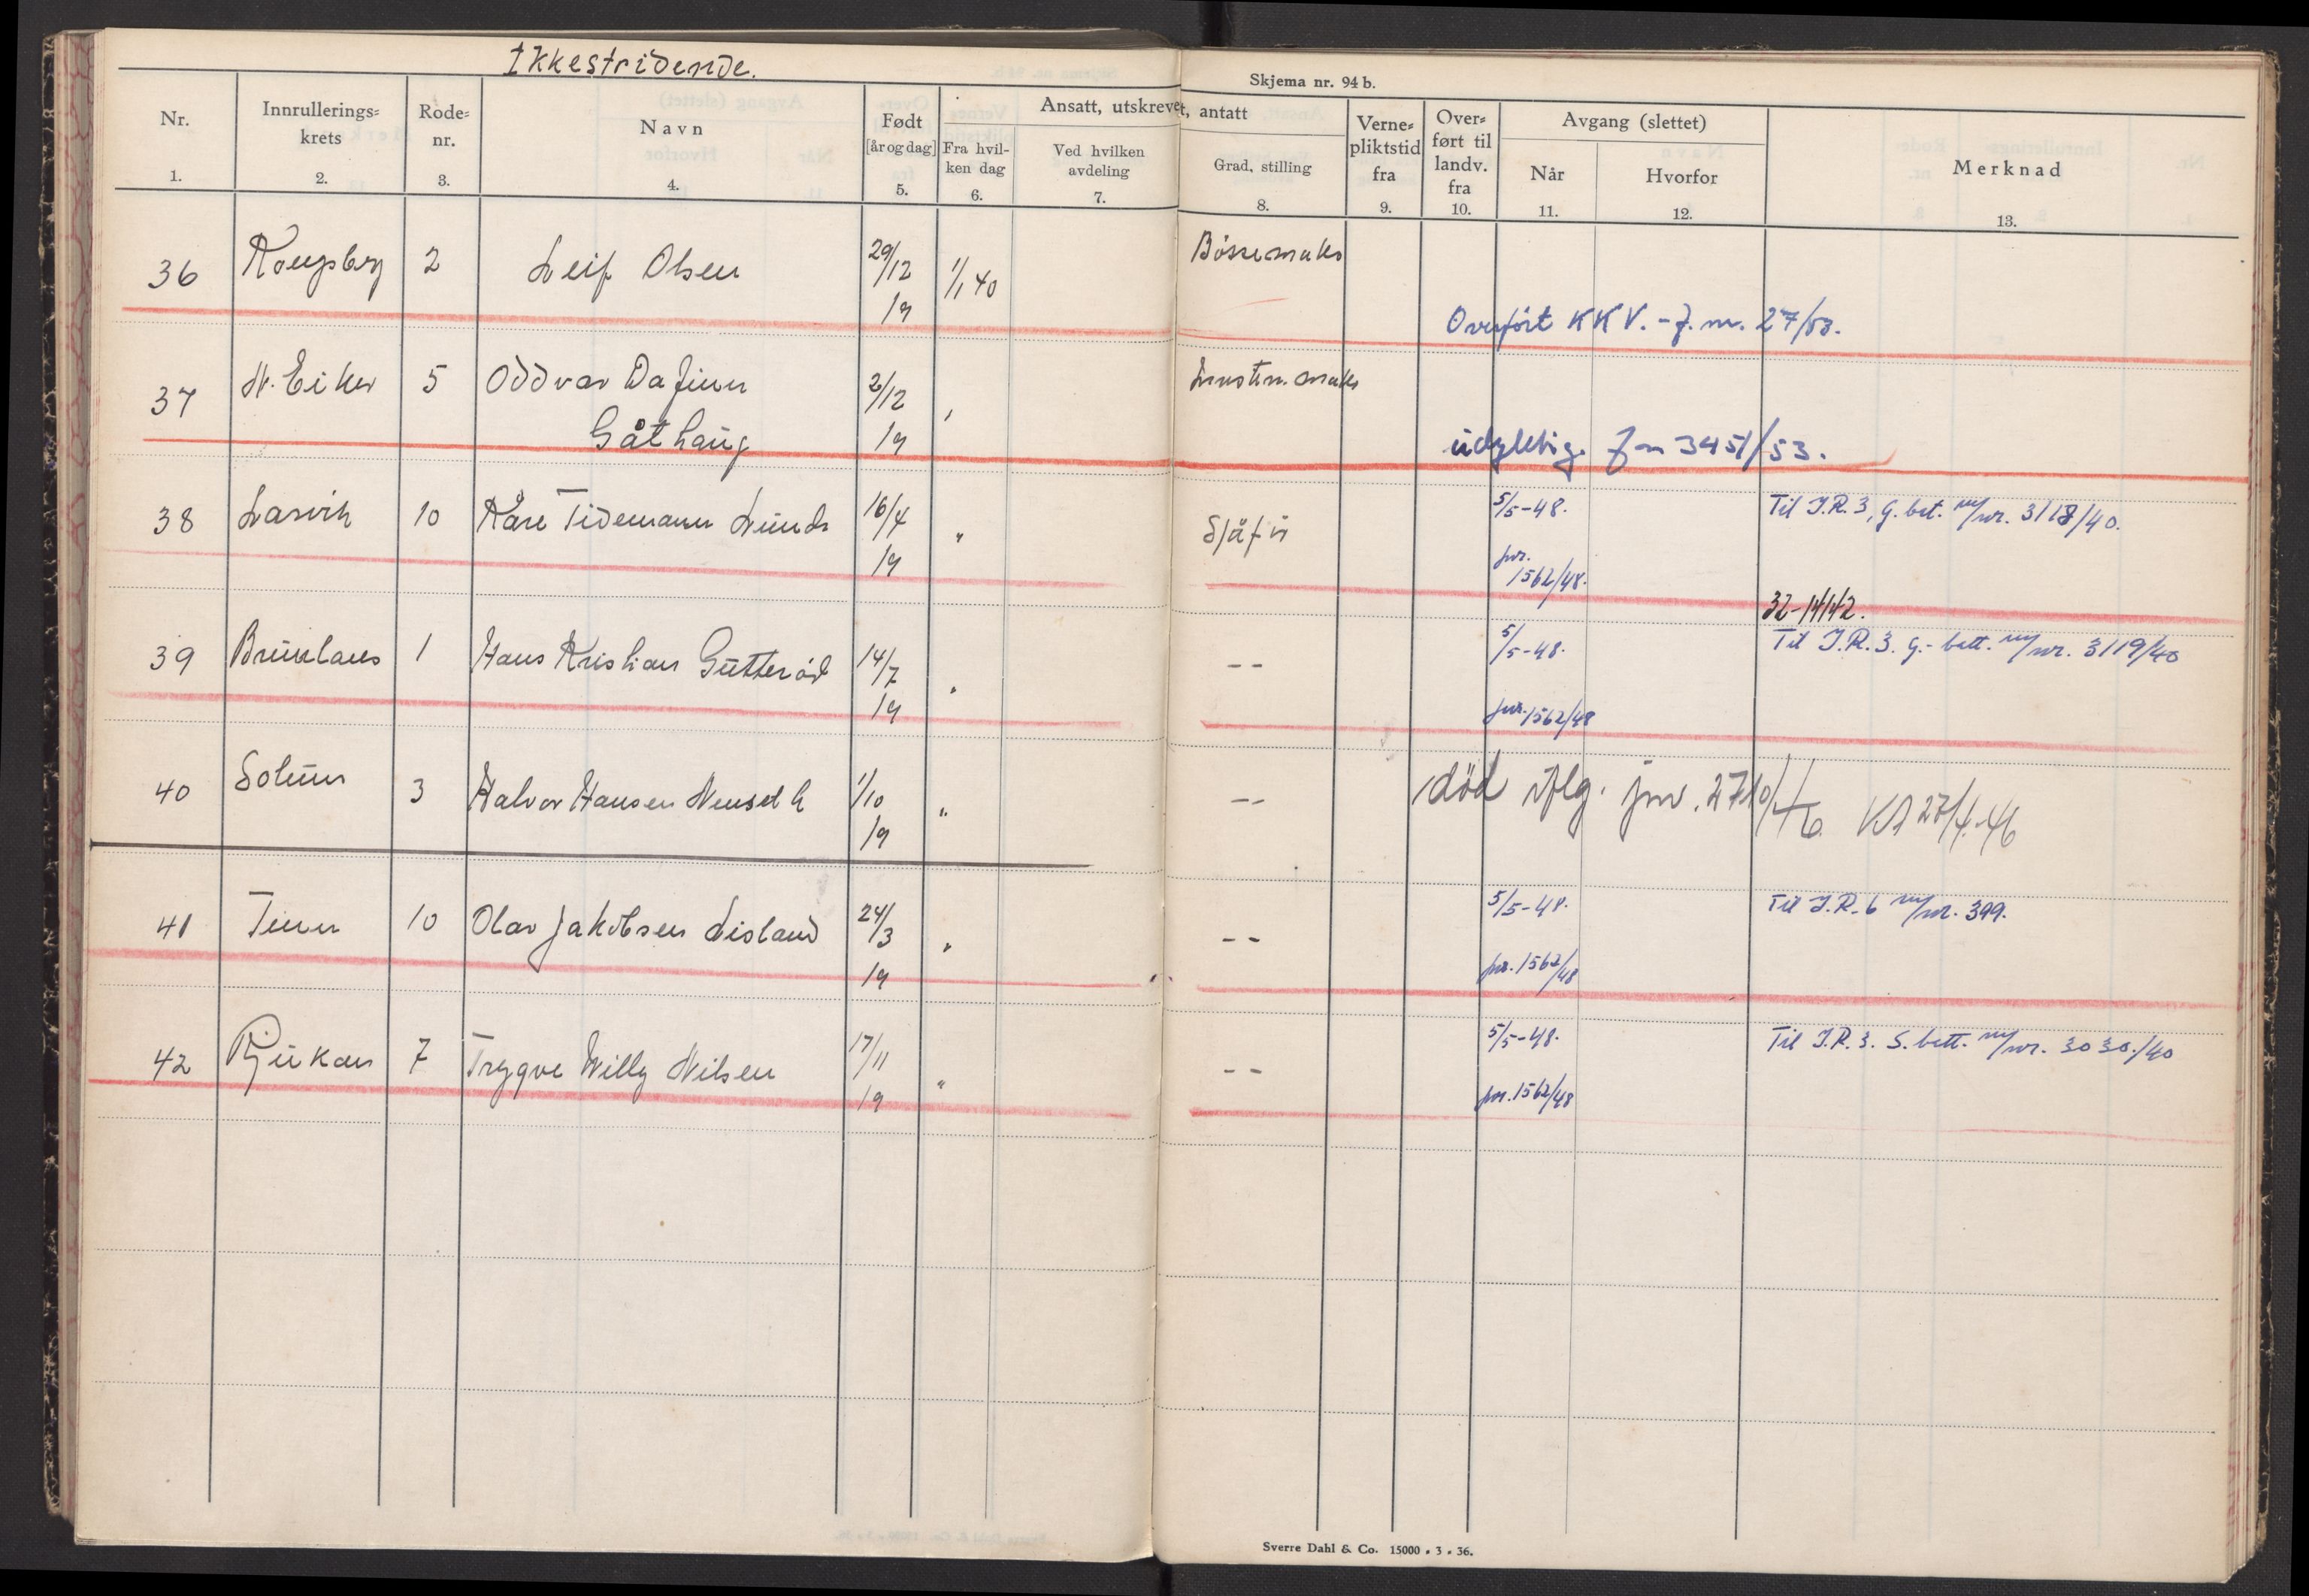 Ikkestridende.
Skjema nr. 94 b.
Nr. Innrullerings= krets Rode= nr. Navn Født [år og dag] Ansatt, utskrevet, antatt Verne= pliktstid fra Over= ført til landv. fra Avgang (slettet) Merknad
Fra hvil- ken dag Ved hvilken avdeling Grad, stilling Når Hvorfor
1. 2. 3. 4. 5. 6. 7. 8. 9. 10. 11. 12. 13.
36 Kongsberg 2 Leif Olsen 29/12 19 1/1 40 Bössemaker
Overfört KKV. - J. nr. 27/53.
37 N. Eiker 5 Oddvar Dafinn 2/12
Gåthaug 19
udyktig. J n 3451/53.
38 Larvik 10 Kåre Tidemann Lund 16/4 19 " Sjåfür 5/5-48. Til J.R. 3, G. bat. m/nr. 3118/40.
jnr. 1562/48.
32-14142.
39 Brunlanes 1 Hans Kristian Gutteröd 14/7 19 " -- 5/5-48. Til J.R. 3. G.- batt. m/nr. 3119/40
jnr. 1562/48
40 Solum 3 Halvor Hansen 1/10 19 " -- död iflg. jnr. 2710/46 KA 27/4-46
41 Tinn 10 Olav Jakobsen Lisland 24/3 19 " -- 5/5-48. Til J.R. 6 m/nr. 399.
jnr. 1562/48
42 Rjukan 7 Trygve Willy Nilsen 17/11 19 " -- 5/5-48. Til J.R. 3. S. batt. m/nr. 3030./40
jnr. 1562/48
Sverre Dahl & Co. 15000 . 3 . 36.